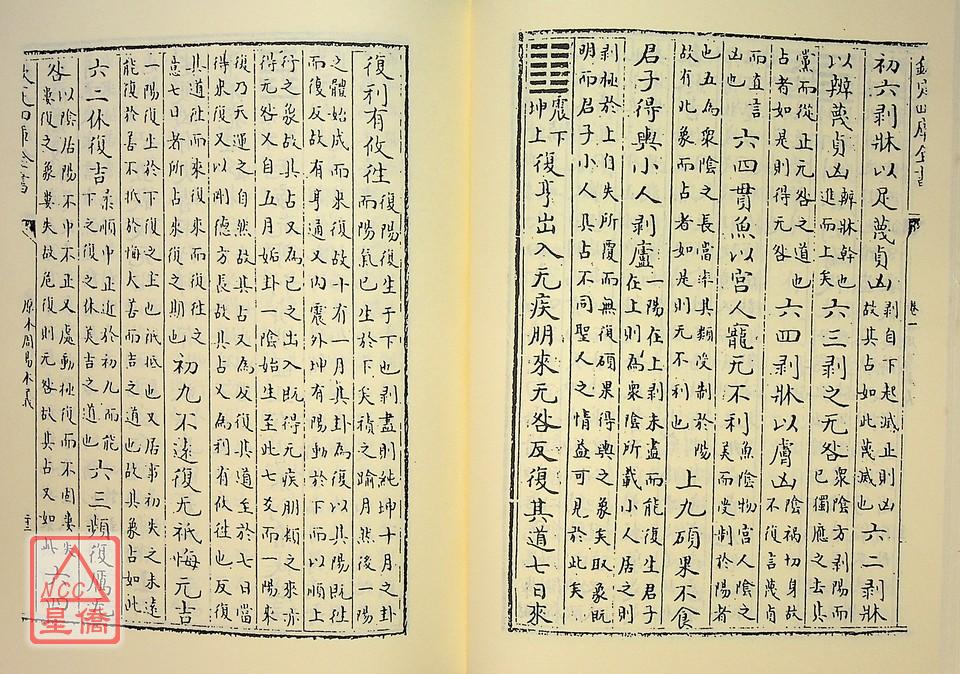 欽定四庫全書 卷一
初六剝牀以足蔑貞凶剝自下起滅正則凶故其占如此蔑滅也六二剝牀
以辨蔑貞凶辨牀幹也進而上矣六三剝之无咎衆陰方剝陽而已獨應之去其
黨而從正无咎之道也占者如是則得无咎六四剝牀以膚凶陰禍切身故不復言蔑貞
而直言凶也六四貫魚以宮人寵无不利魚陰物宮人陰之美而受制於陽者
也五為衆陰之長當率其類受制於陽故有此象而占者如是則无不利也上九碩果不食
君子得輿小人剝廬一陽在上剝未盡而能復生君子在上則為衆陰所載小人居之則
剝極於上自失所覆而無復碩果得輿之象矣取象既明而君子小人其占不同聖人之情益可見於此矣
震下坤上復亨出入无疾朋來无咎反復其道七日來
復利有攸往復陽復生于下也剝盡則純坤十月之卦而陽氣已生於下矣積之踰月然後一陽
之體始成而來復故十有一月其卦為復以其陽既往而復反故有亨道又內震外坤有陽動於下而以順上
行之象故其占又為已之出入既得无疾朋類之來亦得无咎又自五月姤卦一陰始生至此七爻而一陽來
復乃天運之自然故其占又為反復其道至於七日當得來復又以剛德方長故其占又為利有攸往也反復
其道往而來復來而復往之意七日者所占來復之期也初九不遠復无祇悔元吉
一陽復生於下復之主也祇抵也又居事初失之未遠能復於善不抵於悔大善而吉之道也故其象占如此
六二休復吉柔順中正近於初九而能下之復之休美吉之道也六三頻復厲无
咎以陰居陽不中不正又處動極復而不固屢失屢復之象屢失故危復則无咎故其占又如此六四
四庫全書 原本周易本義
NCC
星僑